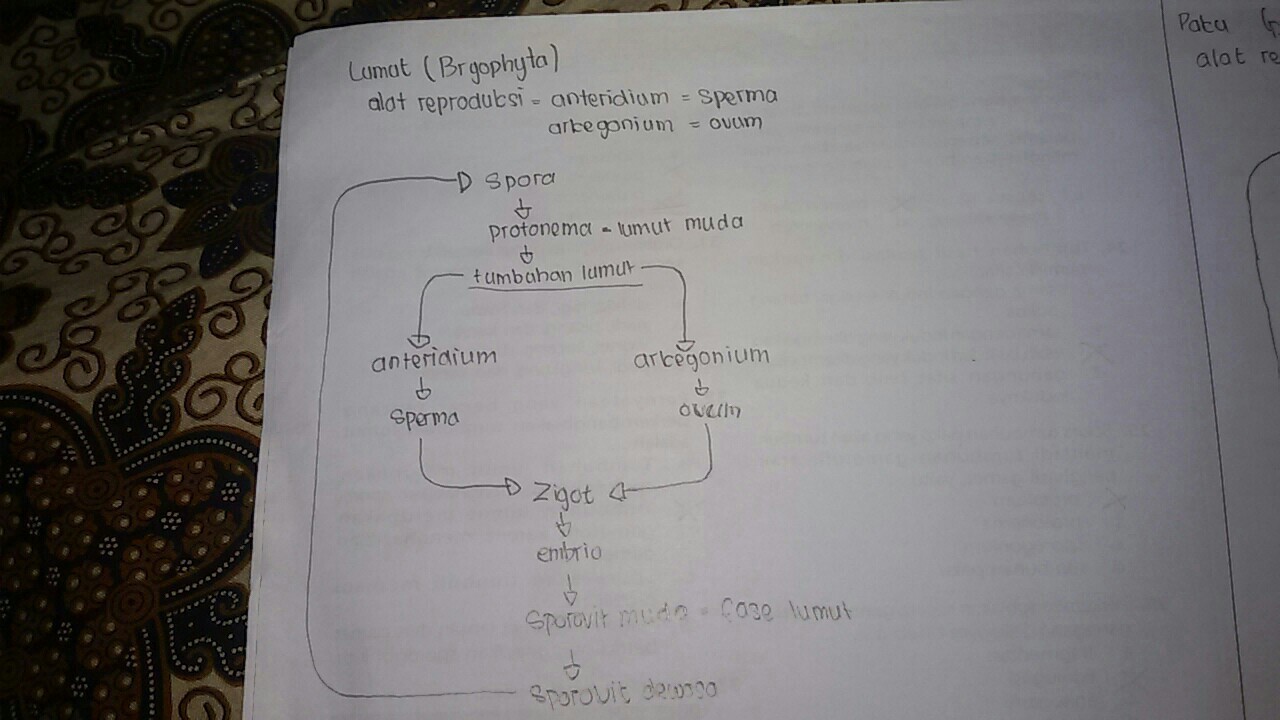 Lumut (Bryophyta)
alat reproduksi = anteridium = sperma
arkegonium = ovum
Spora
protonema = lumut muda
tumbuhan lumut
anteridium arkegonium
sperma ovum
Zigot
embrio
Sporovit muda = fase lumut
Sporovit dewasa
Paku
alat re